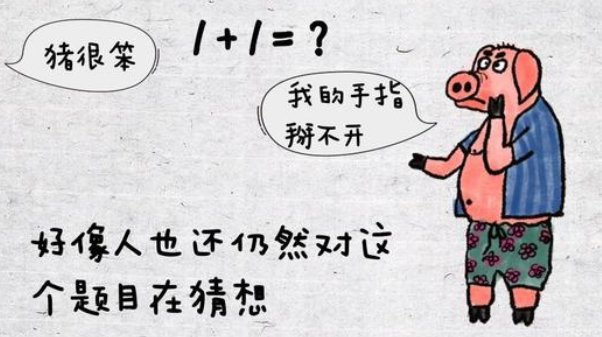 1+1=?
猪很笨
我的手指
掰不开
好像人也还仍然对这
个题目在猜想